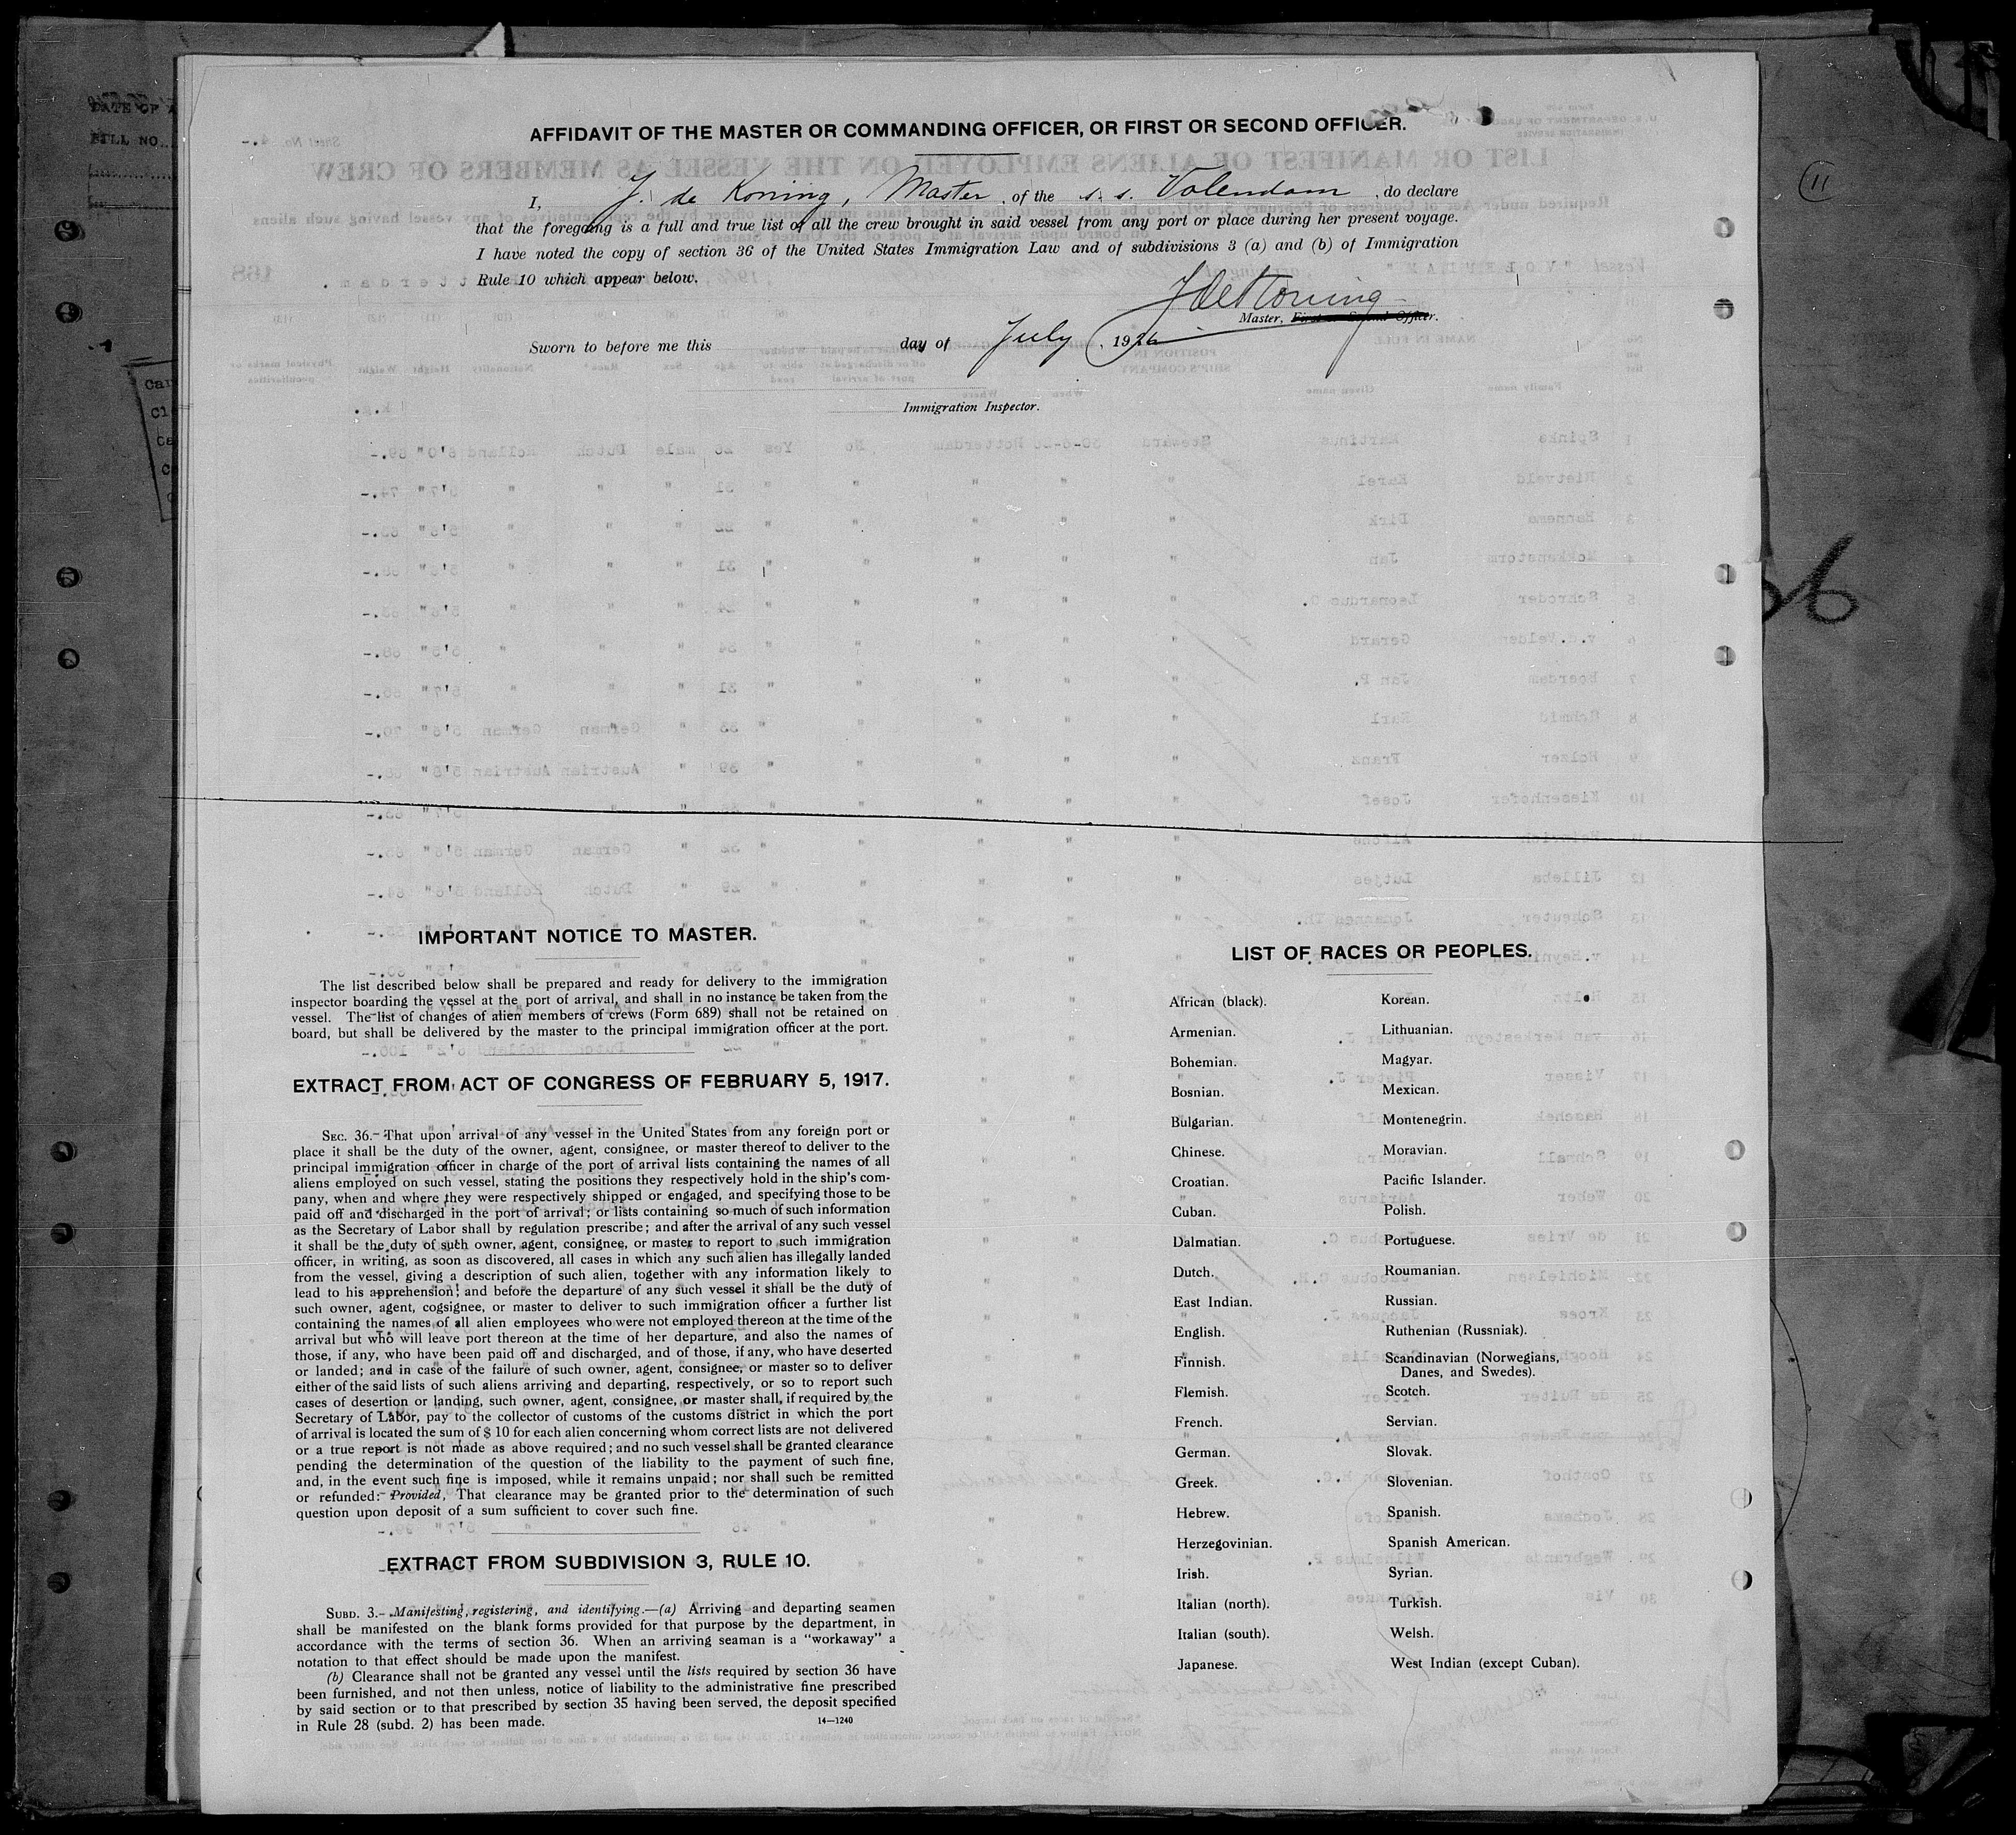 AFFIDAVIT OF THE MASTER OR COMMANDING OFFICER, OR FIRST OR SECOND OFFICER.
I, J. de Koning, Master, of the s. s. Volendam, do declare
that the foregoing is a full and true list of all the crew brought in said vessel from any port or place during her present voyage.
I have noted the copy of section 36 of the United States Immigration Law and of subdivisions 3 (a) and (b) of Immigration
Rule 10 which appear below.
J de Koning
Master, First or Second Officer.
Sworn to before me this day of July, 1926
Immigration Inspector.
11
IMPORTANT NOTICE TO MASTER.
The list described below shall be prepared and ready for delivery to the immigration
inspector boarding the vessel at the port of arrival, and shall in no instance be taken from the
vessel. The list of changes of alien members of crews (Form 689) shall not be retained on
board, but shall be delivered by the master to the principal immigration officer at the port.
EXTRACT FROM ACT OF CONGRESS OF FEBRUARY 5, 1917.
SEC. 36. That upon arrival of any vessel in the United States from any foreign port or
place it shall be the duty of the owner, agent, consignee, or master thereof to deliver to the
principal immigration officer in charge of the port of arrival lists containing the names of all
aliens employed on such vessel, stating the positions they respectively hold in the ship's com-
pany, when and where they were respectively shipped or engaged, and specifying those to be
paid off and discharged in the port of arrival; or lists containing so much of such information
as the Secretary of Labor shall by regulation prescribe; and after the arrival of any such vessel
it shall be the duty of such owner, agent, consignee, or master to report to such immigration
officer, in writing, as soon as discovered, all cases in which any such alien has illegally landed
from the vessel, giving a description of such alien, together with any information likely to
lead to his apprehension; and before the departure of any such vessel it shall be the duty of
such owner, agent, cogsignee, or master to deliver to such immigration officer a further list
containing the names of all alien employees who were not employed thereon at the time of the
arrival but who will leave port thereon at the time of her departure, and also the names of
those, if any, who have been paid off and discharged, and of those, if any, who have deserted
or landed; and in case of the failure of such owner, agent, consignee, or master so to deliver
either of the said lists of such aliens arriving and departing, respectively, or so to report such
cases of desertion or landing, such owner, agent, consignee, or master shall, if required by the
Secretary of Labor, pay to the collector of customs of the customs district in which the port
of arrival is located the sum of $ 10 for each alien concerning whom correct lists are not delivered
or a true report is not made as above required; and no such vessel shall be granted clearance
pending the determination of the question of the liability to the payment of such fine,
and, in the event such fine is imposed, while it remains unpaid; nor shall such be remitted
or refunded: Provided, That clearance may be granted prior to the determination of such
question upon deposit of a sum sufficient to cover such fine.
EXTRACT FROM SUBDIVISION 3, RULE 10.
SUBD. 3. Manifesting, registering, and identifying.—(a) Arriving and departing seamen
shall be manifested on the blank forms provided for that purpose by the department, in
accordance with the terms of section 36. When an arriving seaman is a "workaway" a
notation to that effect should be made upon the manifest.
(b) Clearance shall not be granted any vessel until the lists required by section 36 have
been furnished, and not then unless, notice of liability to the administrative fine prescribed
by said section or to that prescribed by section 35 having been served, the deposit specified
in Rule 28 (subd. 2) has been made.
14—1240
LIST OF RACES OR PEOPLES.
African (black).
Armenian.
Bohemian.
Bosnian.
Bulgarian.
Chinese.
Croatian.
Cuban.
Dalmatian.
Dutch.
East Indian.
English.
Finnish.
Flemish.
French.
German.
Greek.
Hebrew.
Herzegovinian.
Irish.
Italian (north).
Italian (south).
Japanese.
Korean.
Lithuanian.
Magyar.
Mexican.
Montenegrin.
Moravian.
Pacific Islander.
Polish.
Portuguese.
Roumanian.
Russian.
Ruthenian (Russniak).
Scandinavian (Norwegians,
Danes, and Swedes).
Scotch.
Servian.
Slovak.
Slovenian.
Spanish.
Spanish American.
Syrian.
Turkish.
Welsh.
West Indian (except Cuban).